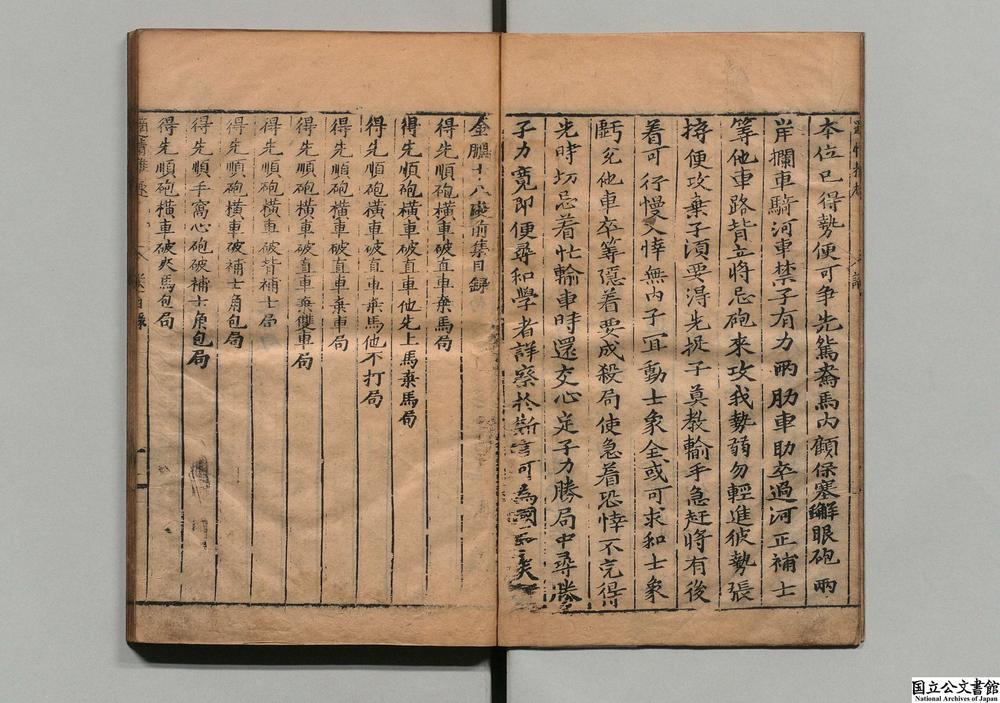 本位已得勢便可争先鴛鴦馬內顧保塞蠏眼砲兩
岸攔車騎河車禁子有力兩肋車助卒過河正補士
等他車路背立将忌砲来攻我勢弱勿輕進彼勢張
持便攻棄子湏要得先捉子莫教輸手急赶將有後
着可行慢入悖無內子冝動士象全或可求和士象
虧兊他車卒等隱着要成殺局使急着恐悖不完得
先時切忌着忙輸車時還交心定子力勝局中尋勝
子力寛即便尋和學者詳察於斯言可為國
矣
金鵬十八變前集目録
得先順砲橫車破直車棄馬局
得先順砲橫車破直車他先上馬棄馬局
得先順砲橫車破直車棄馬他不打局
得先順砲橫車破直車棄車局
得先順砲橫車破直車棄雙車局
得先順砲橫車破背補士局
得先順砲橫車破補士角包局
得先順手窩心砲破補士角包局
得先順砲橫車破夾馬包局
国立公文書館
National Archives of Japan